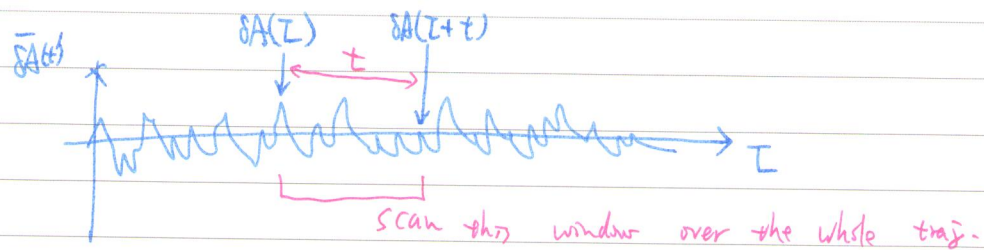 δA(τ) δA(τ+t)
δA(t)
t
τ
scan this window over the whole traj.